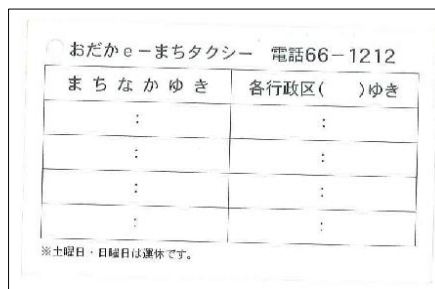 おだかe－まちタクシー 電話66－1212
まちなかゆき 各行政区( )ゆき
: :
: :
: :
: :
※土曜日・日曜日は運休です。